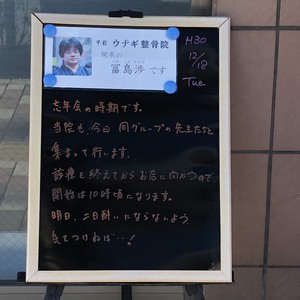 千石 ウナギ整骨院
院長の
冨島渉です
とみ しま わたる
H30
12/18
Tue
忘年会の時期です。
当院も、今日 同グループの先生たちと
集まって行います。
診療を終えてからお店に向かうので
開始は10時頃になります。
明日、二日酔いにならないよう、
気をつけねば…！